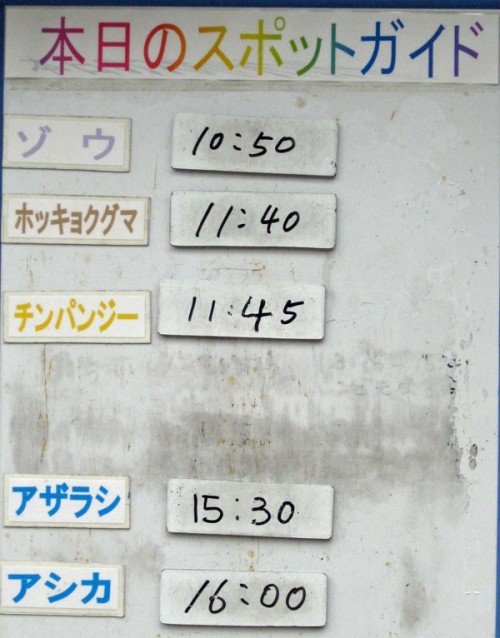 本日のスポットガイド
ゾウ 10:50
ホッキョクグマ 11:40
チンパンジー 11:45
アザラシ 15:30
アシカ 16:00